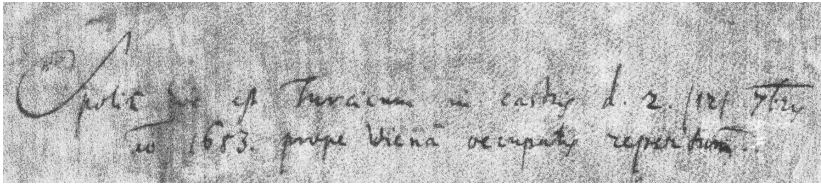 Spoliū hoc est Turcicum in castris d. 2. /12/ 7bris
ao 1683. prope Vieñā occupatis repertum.